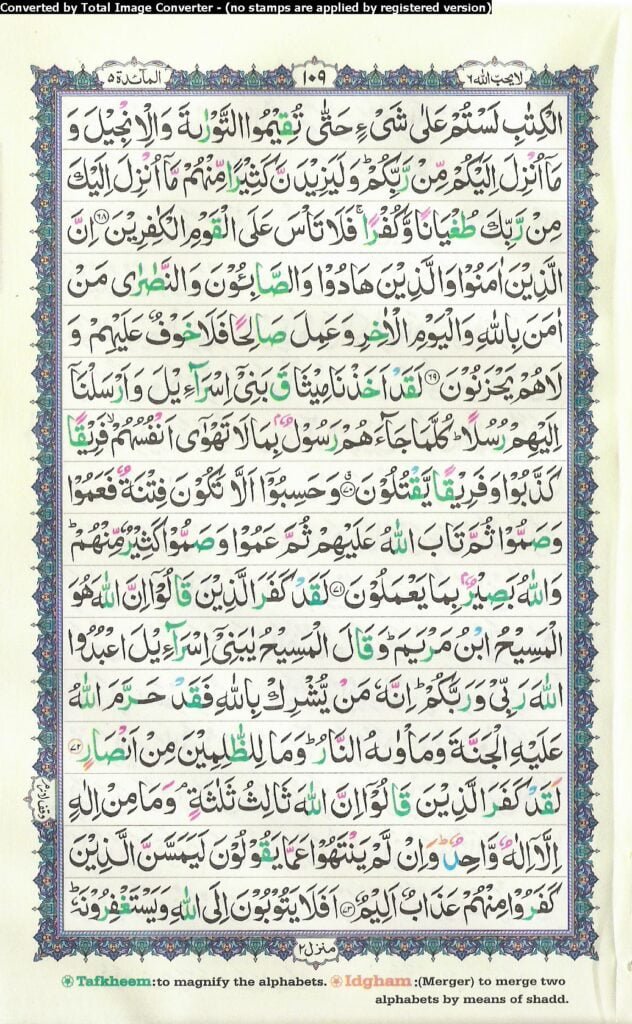 Converted by Total Image Converter - (no stamps are applied by registered version)
لا یحب اللہ ٦ ١٠٩ المآئدة ٥
الْكِتٰبِ لَسْتُمْ عَلٰى شَىْءٍ حَتّٰى تُقِيْمُوا التَّوْرٰىةَ وَالْاِنْجِيْلَ وَ
مَاۤ اُنْزِلَ اِلَيْكُمْ مِّنْ رَّبِّكُمْ ؕ وَلَيَزِيْدَنَّ كَثِيْرًا مِّنْهُمْ مَّاۤ اُنْزِلَ اِلَيْكَ
مِنْ رَّبِّكَ طُغْيَانًا وَّكُفْرًا ۚ فَلَا تَاْسَ عَلَى الْقَوْمِ الْكٰفِرِيْنَ ﴿٦٨﴾ اِنَّ
الَّذِيْنَ اٰمَنُوْا وَالَّذِيْنَ هَادُوْا وَالصَّابِـُٔوْنَ وَالنَّصٰرٰى مَنْ
اٰمَنَ بِاللّٰهِ وَالْيَوْمِ الْاٰخِرِ وَعَمِلَ صَالِحًا فَلَا خَوْفٌ عَلَيْهِمْ وَ
لَا هُمْ يَحْزَنُوْنَ ﴿٦٩﴾ لَقَدْ اَخَذْنَا مِيْثَاقَ بَنِىْۤ اِسْرَآءِيْلَ وَاَرْسَلْنَاۤ
اِلَيْهِمْ رُسُلًا ؕ كُلَّمَا جَآءَهُمْ رَسُوْلٌۢ بِمَا لَا تَهْوٰٓى اَنْفُسُهُمْ ۙ فَرِيْقًا
كَذَّبُوْا وَفَرِيْقًا يَّقْتُلُوْنَ ﴿٧٠﴾ وَحَسِبُوْۤا اَلَّا تَكُوْنَ فِتْنَةٌ فَعَمُوْا
وَصَمُّوْا ثُمَّ تَابَ اللّٰهُ عَلَيْهِمْ ثُمَّ عَمُوْا وَصَمُّوْا كَثِيْرٌ مِّنْهُمْ ؕ
وَاللّٰهُ بَصِيْرٌۢ بِمَا يَعْمَلُوْنَ ﴿٧١﴾ لَقَدْ كَفَرَ الَّذِيْنَ قَالُوْۤا اِنَّ اللّٰهَ هُوَ
الْمَسِيْحُ ابْنُ مَرْيَمَ ؕ وَقَالَ الْمَسِيْحُ يٰبَنِىْۤ اِسْرَآءِيْلَ اعْبُدُوا
اللّٰهَ رَبِّىْ وَرَبَّكُمْ ؕ اِنَّهٗ مَنْ يُّشْرِكْ بِاللّٰهِ فَقَدْ حَرَّمَ اللّٰهُ
عَلَيْهِ الْجَنَّةَ وَمَاْوٰىهُ النَّارُ ؕ وَمَا لِلظّٰلِمِيْنَ مِنْ اَنْصَارٍ ﴿٧٢﴾
لَقَدْ كَفَرَ الَّذِيْنَ قَالُوْۤا اِنَّ اللّٰهَ ثَالِثُ ثَلٰثَةٍ ۘ وَمَا مِنْ اِلٰهٍ
اِلَّاۤ اِلٰهٌ وَّاحِدٌ ؕ وَاِنْ لَّمْ يَنْتَهُوْا عَمَّا يَقُوْلُوْنَ لَيَمَسَّنَّ الَّذِيْنَ
كَفَرُوْا مِنْهُمْ عَذَابٌ اَلِيْمٌ ﴿٧٣﴾ اَفَلَا يَتُوْبُوْنَ اِلَى اللّٰهِ وَيَسْتَغْفِرُوْنَهٗ ؕ
وقف لازم
منزل ٢
Tafkheem:to magnify the alphabets. Idgham :(Merger) to merge two
alphabets by means of shadd.